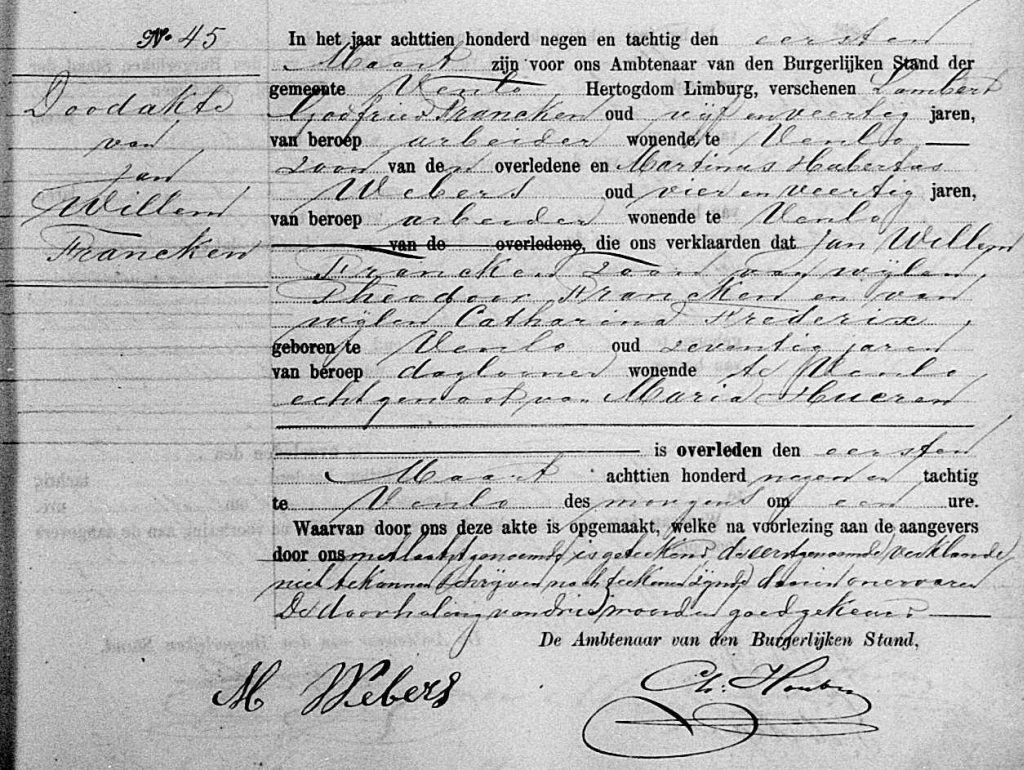 No 45
Doodakte
van
Jan
Willem
Francken
In het jaar achttien honderd negen en tachtig den eersten
Maart zijn voor ons Ambtenaar van den Burgerlijken Stand der
gemeente Venlo, Hertogdom Limburg, verschenen Lambert
Godfried Francken oud vijf en veertig jaren,
van beroep arbeider wonende te Venlo
zoon van den overledene en Martinus Hubertus
Webers oud vier en veertig jaren,
van beroep arbeider wonende te Venlo
van de overledene, die ons verklaarden dat Jan Willem
Francken zoon van wijlen
Theodoor Francken en van
wijlen Catharina Frederix,
geboren te Venlo oud zeventig jaren
van beroep daglooner wonende te Venlo
echtgenoot van Maria Hueren
is overleden den eersten
Maart achttien honderd negen en tachtig
te Venlo des morgens om een ure.
Waarvan door ons deze akte is opgemaakt, welke na voorlezing aan de aangevers
door ons met laatstgenoemde is geteekend, de eerstgenoemde verklaarde
niet te kunnen schrijven noch teekenen zijnde daarin onervaren
De doorhaling van drie woorden goedgekeurd
De Ambtenaar van den Burgerlijken Stand,
M Webers
Ch. Houben